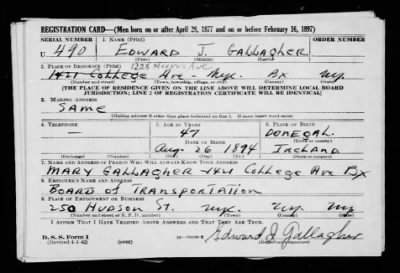 REGISTRATION CARD—(Men born on or after April 28, 1877 and on or before February 16, 1897)
SERIAL NUMBER 1. NAME (Print) ORDER NUMBER
U 490 EDWARD J. GALLAGHER
(First) (Middle) (Last)
2. PLACE OF RESIDENCE (Print) 1228
1421 College Ave - NYK. Bx NY.
(Number and street) (Town, township, village, or city) (County) (State)
[THE PLACE OF RESIDENCE GIVEN ON THE LINE ABOVE WILL DETERMINE LOCAL BOARD
JURISDICTION; LINE 2 OF REGISTRATION CERTIFICATE WILL BE IDENTICAL]
3. MAILING ADDRESS
SAME
[Mailing address if other than place indicated on line 2. If same insert word same]
4. TELEPHONE 5. AGE IN YEARS 6. PLACE OF BIRTH
— 47 DONEGAL
DATE OF BIRTH (Town or county)
Aug. 26 1894 Ireland
(Exchange) (Number) (Mo.) (Day) (Yr.) (State or country)
7. NAME AND ADDRESS OF PERSON WHO WILL ALWAYS KNOW YOUR ADDRESS
MARY GALLAGHER - 1421 College Ave Bx
8. EMPLOYER'S NAME AND ADDRESS
BOARD OF TRANSPORTATION
9. PLACE OF EMPLOYMENT OR BUSINESS
250 HUDSON ST. NYK. NY. NY
(Number and street or R. F. D. number) (Town) (County) (State)
I AFFIRM THAT I HAVE VERIFIED ABOVE ANSWERS AND THAT THEY ARE TRUE.
D. S. S. Form 1
(Revised 4-1-42) (over) Edward J. Gallagher